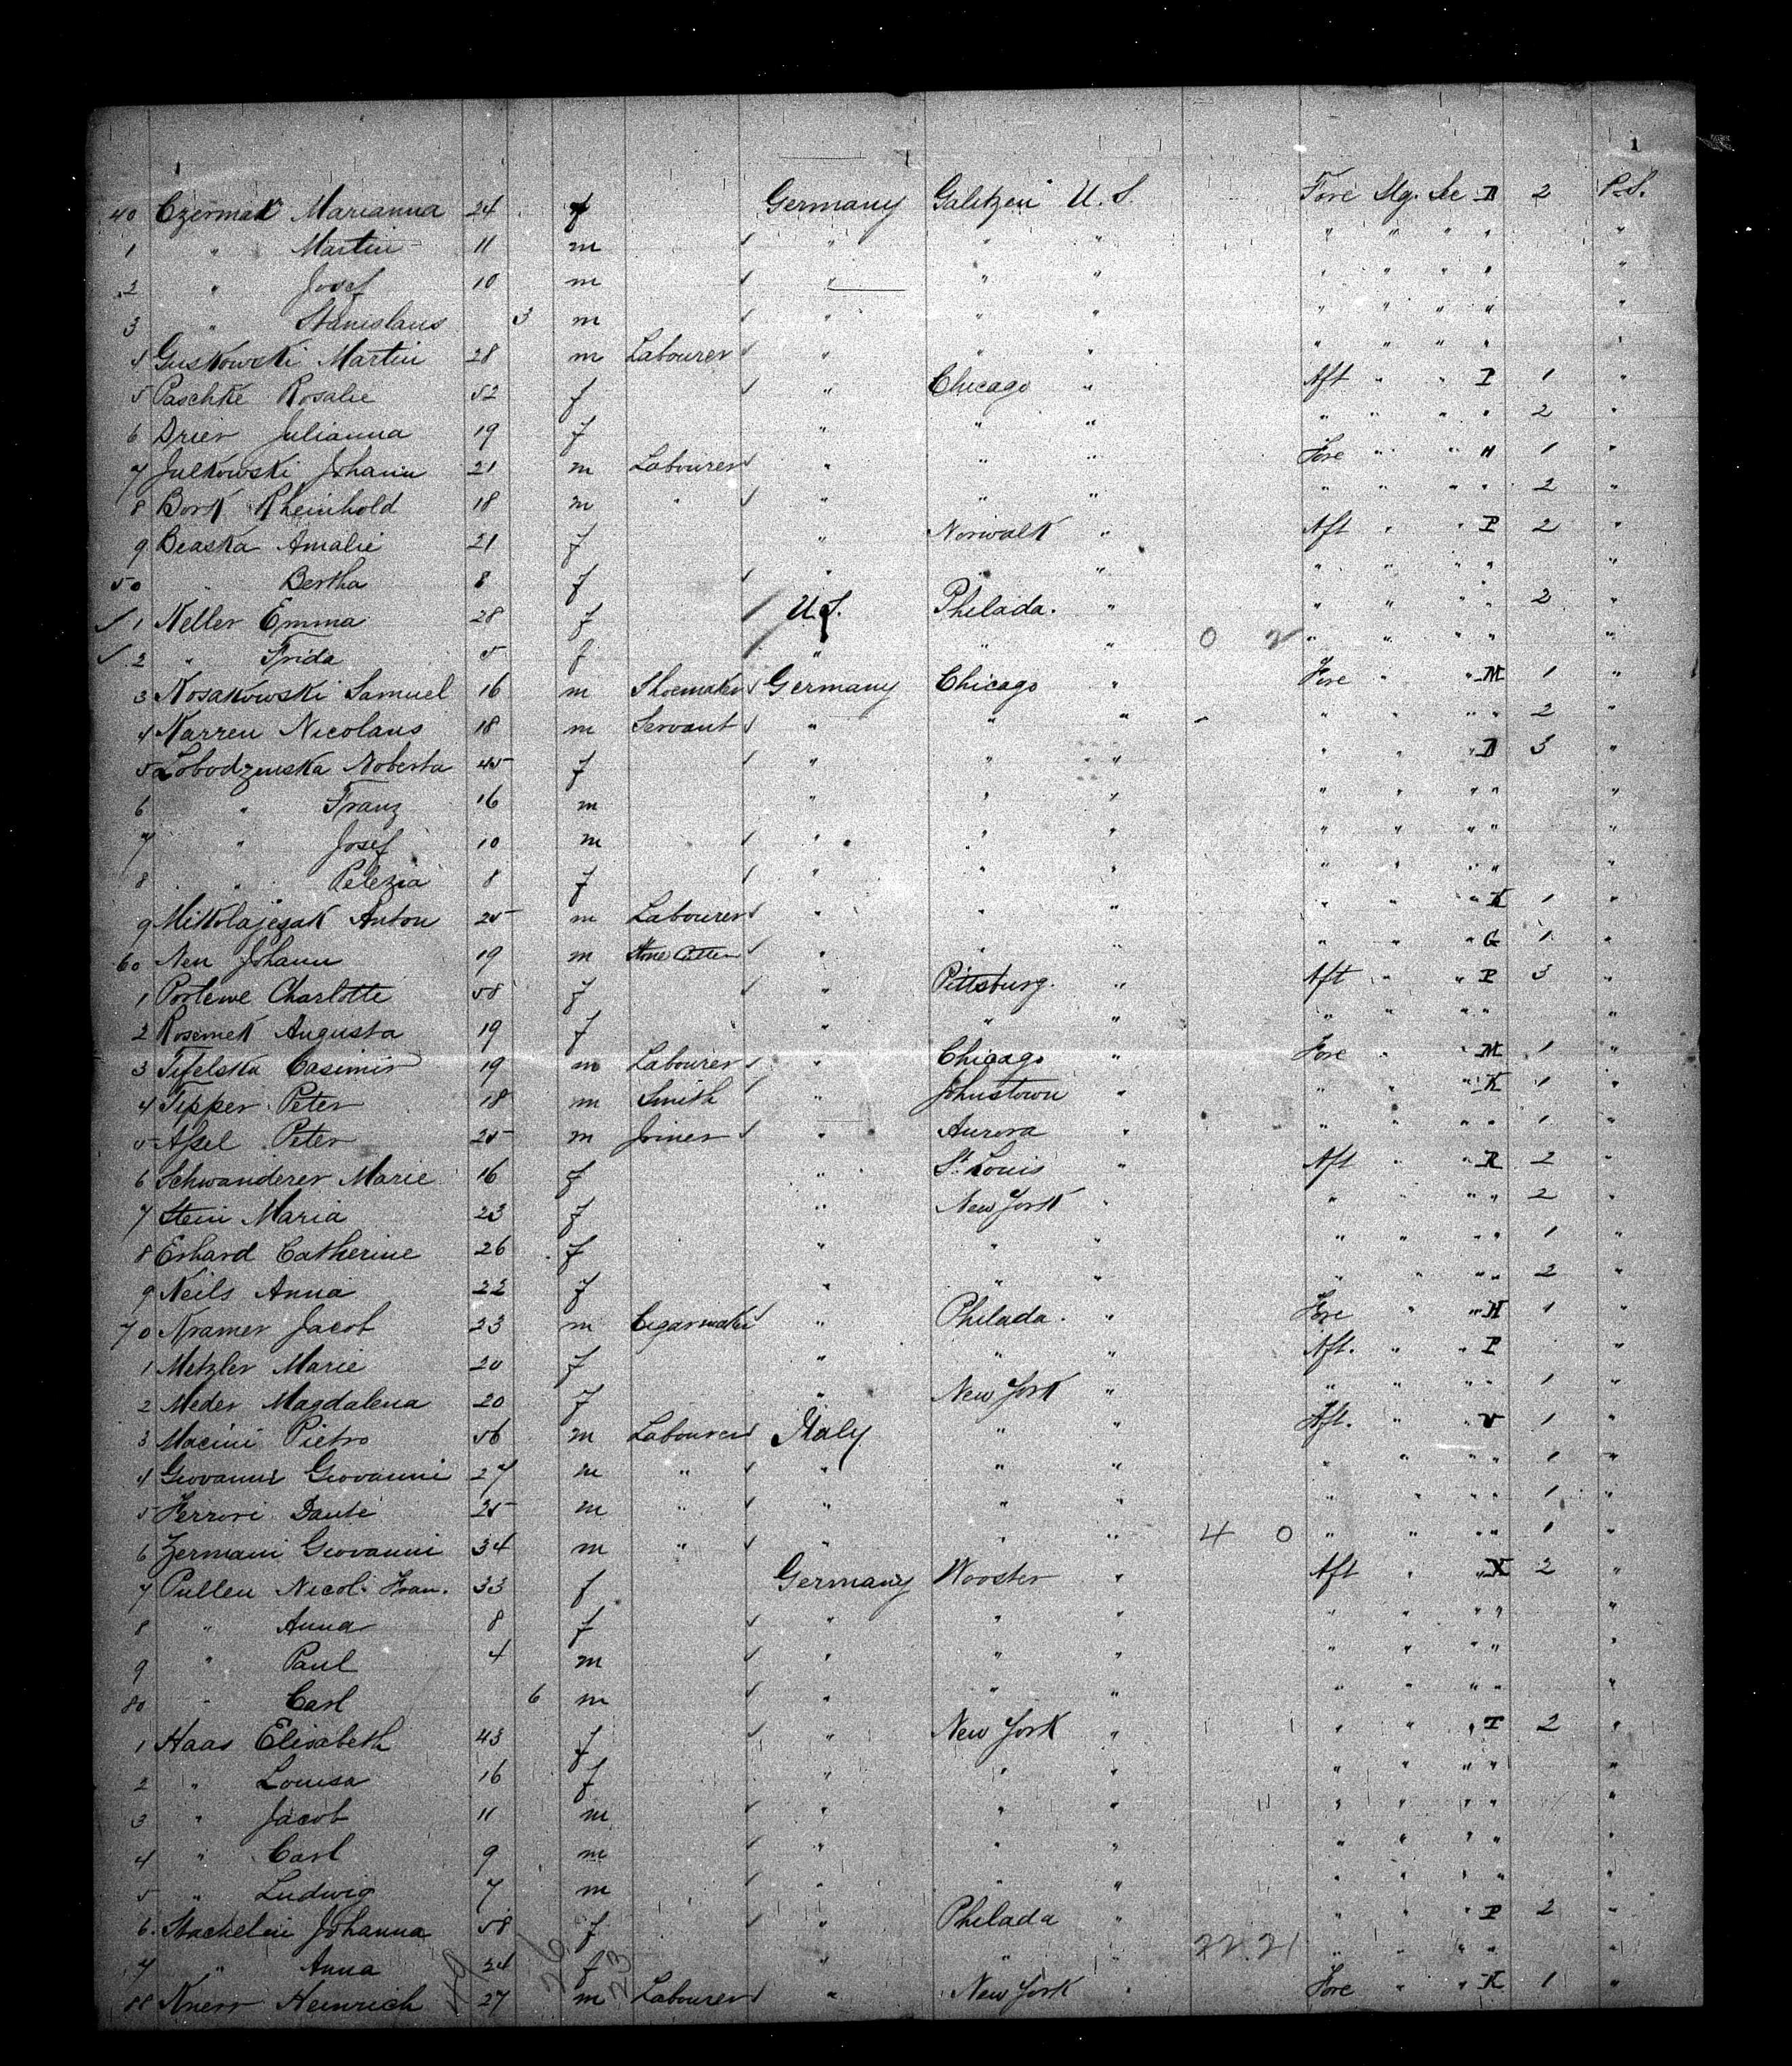 1
40 Czermak Marianna 24 f Germany Galitzen U. S. Fore Stg. Sec D 2 P. S.
1 " Martin 11 m " " " " " " " "
2 " Josef 10 m " " " " " " " "
3 " Stanislaus 3 m " " " " " " " "
4 Guskowski Martin 28 m Labourer " " " " " " " "
5 Paschke Rosalie 52 f " Chicago " Aft " " P 1 "
6 Drier Julianna 19 f " " " " " " " 2 "
7 Julkowski Johann 21 m Labourer " " " Fore " " H 1 "
8 Bork Rheinhold 18 m " " " " " " " " 2 "
9 Beaska Amalie 21 f " Norwalk " Aft " " P 2 "
50 " Bertha 8 f " " " " " " " "
1 Keller Emma 28 f U.S. Philada. " " " " " 2 "
2 " Frida 5 f " " " 0 2 " " " " "
3 Kosakowski Samuel 16 m Shoemaker Germany Chicago " Fore " " M 1 "
4 Karren Nicolaus 18 m Servant " " " " " " " 2 "
5 Lobodzinska Noberta 45 f " " " " " " D 3 "
6 " Franz 16 m " " " " " " " "
7 " Josef 10 m " " " " " " " "
8 " Pelezia 8 f " " " " " " " "
9 Mikolajczak Anton 25 m Labourer " " " " " " K 1 "
60 Neu Johann 19 m Stone Cutter " " " " " " G 1 "
1 Porlewe Charlotte 58 f " Pittsburg. " Aft " " P 3 "
2 Rosemek Augusta 19 f " " " " " " " "
3 Tifelska Casimir 19 m Labourer " Chicago " Fore " " M 1 "
4 Tipper Peter 18 m Smith " Johnstown " " " " K 1 "
5 Apel Peter 25 m Joiner " Aurora " " " " " 1 "
6 Schwanderer Marie 16 f " St. Louis " Aft " " R 2 "
7 Stein Maria 23 f " New York " " " " " 2 "
8 Erhard Catherine 26 f " " " " " " " 1 "
9 Neils Anna 22 f " " " " " " " 2 "
70 Kramer Jacob 23 m Cigarmaker " Philada. " Fore " " H 1 "
1 Metzler Marie 20 f " " " Aft. " " P "
2 Meder Magdalena 20 f " New York " " " " " 1 "
3 Macini Pietro 56 m Labourer Italy " " Aft. " " V 1 "
4 Giovanni Giovanni 27 m " " " " " " " " 1 "
5 Ferrori Dante 25 m " " " " " " " " 1 "
6 Zermani Giovanni 34 m " " " " 4 0 " " " " 1 "
7 Pullen Nicol. Fran. 33 f Germany Wooster " Aft " " X 2 "
8 " Anna 8 f " " " " " " " "
9 " Paul 4 m " " " " " " " "
80 " Carl 6 m " " " " " " " "
1 Haas Elisabeth 43 f " New York " " " " T 2 "
2 " Louisa 16 f " " " " " " " "
3 " Jacob 11 m " " " " " " " "
4 " Carl 9 m " " " " " " " "
5 " Ludwig 7 m " " " " " " " "
6 Stachelin Johanna 58 f " Philada " " " " P 2 "
7 " Anna 24 f " " " 22 21 " " " " "
88 Knerr Heinrich 27 m Labourer " New York " Fore " " K 1 "
49 26 23